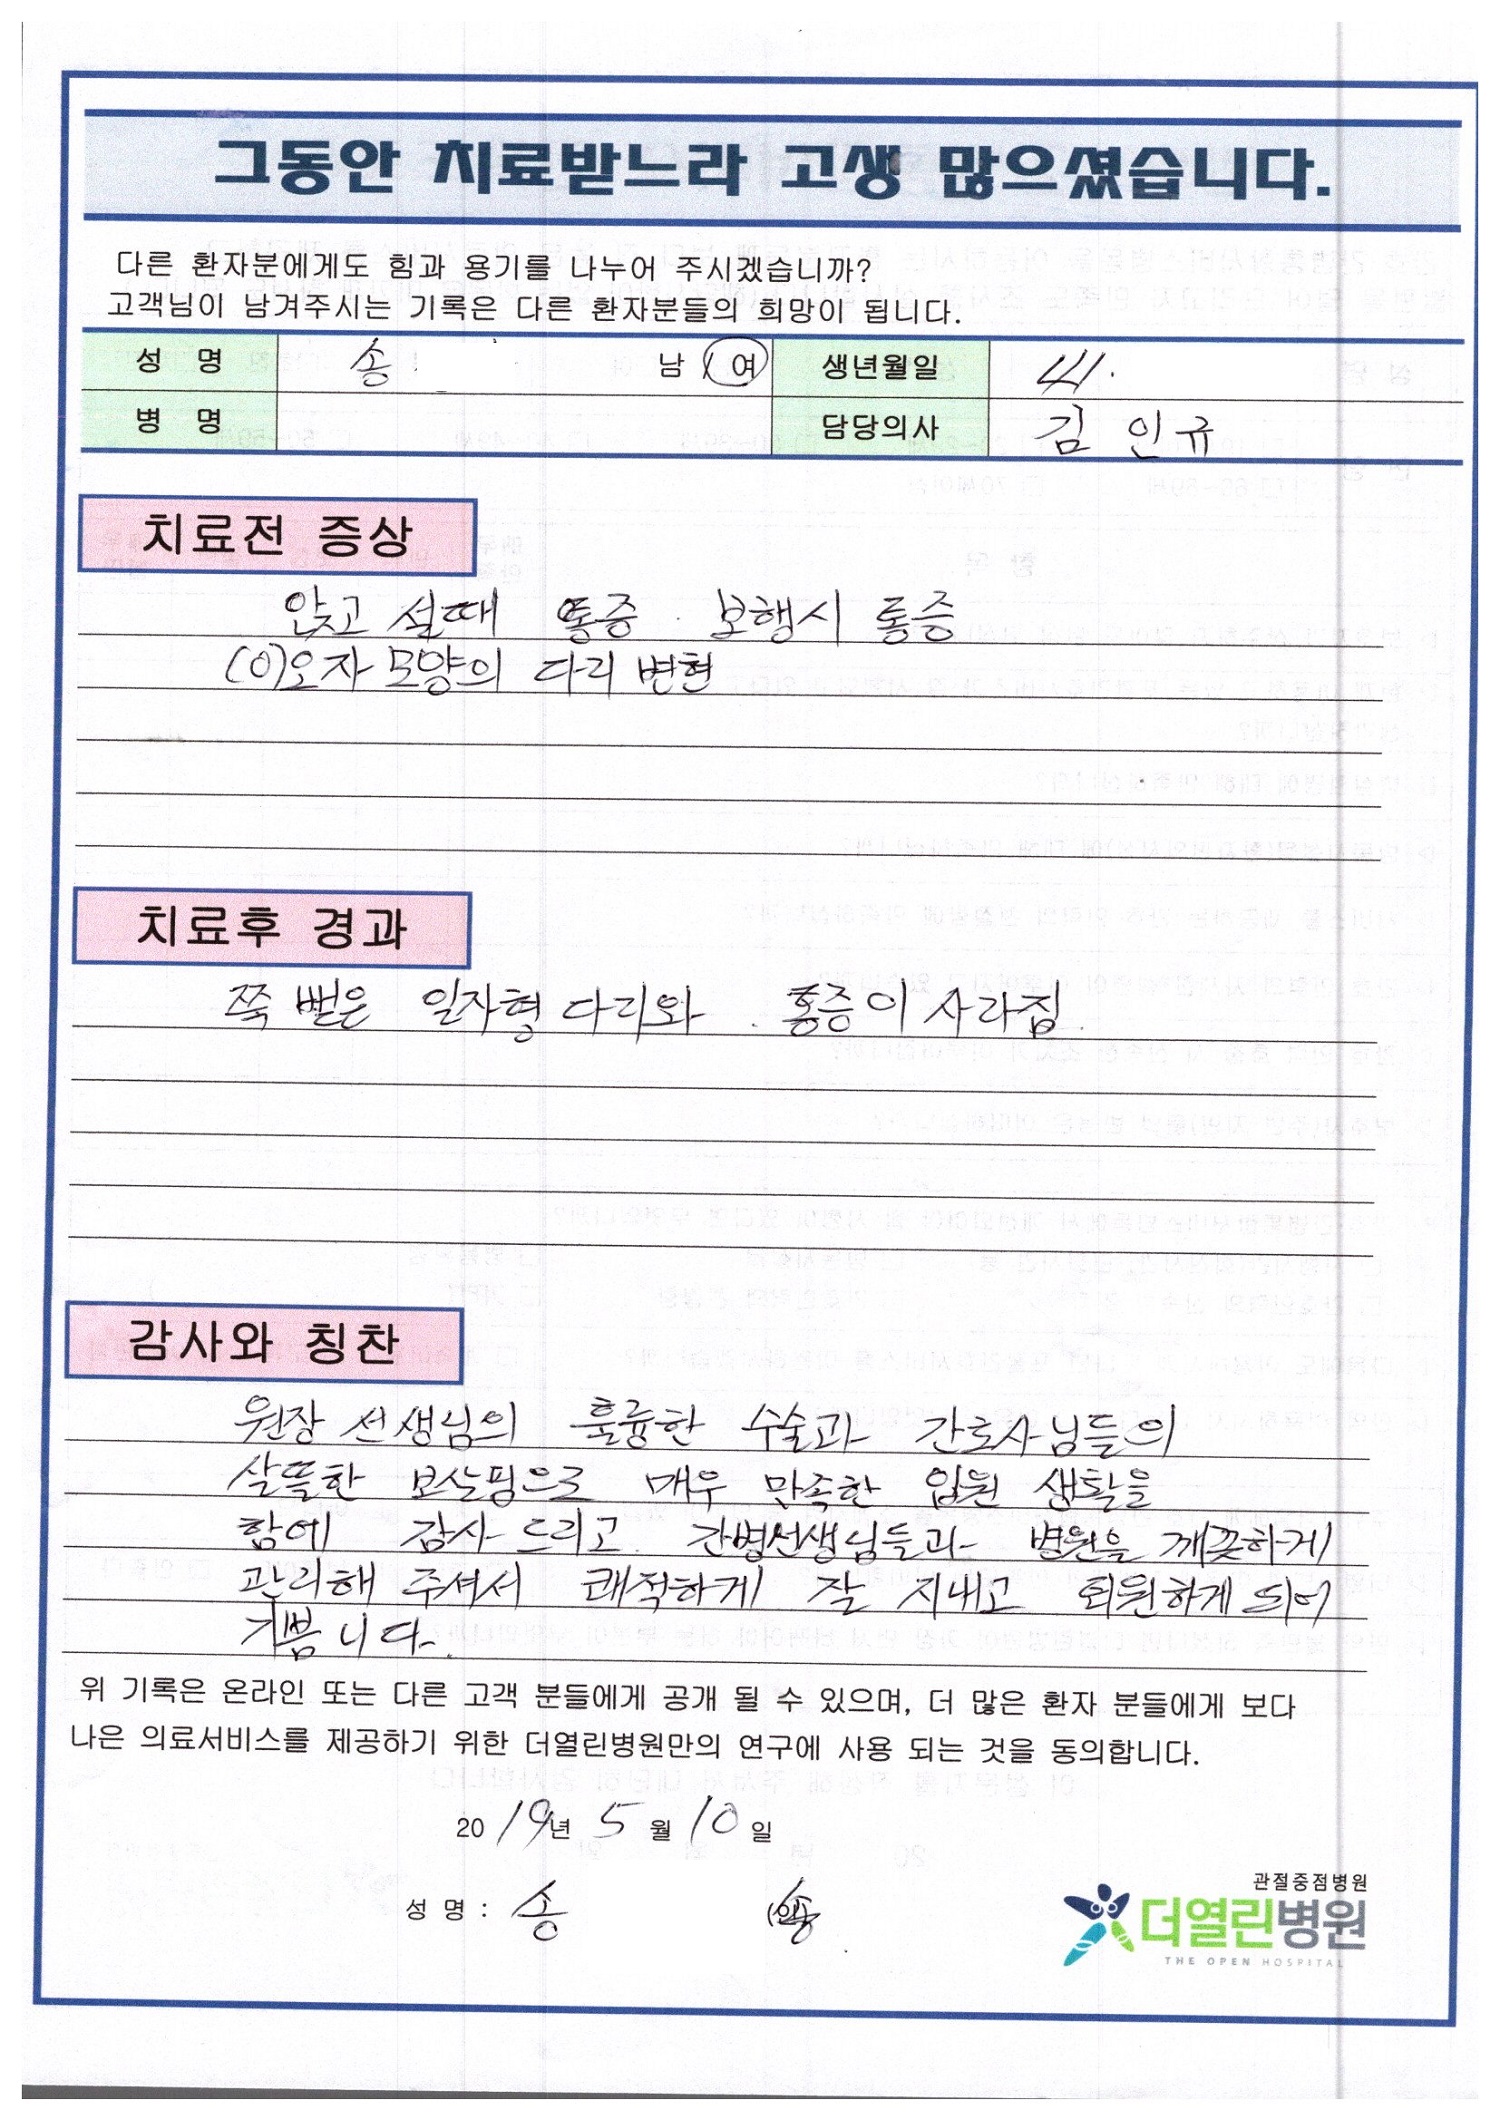 그동안 치료받느라 고생 많으셨습니다.
다른 환자분에게도 힘과 용기를 나누어 주시겠습니까?
고객님이 남겨주시는 기록은 다른 환자분들의 희망이 됩니다.
성 명 송 남 / 여 생년월일
병 명 담당의사 김 인규
치료전 증상
앉고 설때 통증. 보행시 통증
(O)오자 모양의 다리 변현
치료후 경과
쭉 뻗은 일자형 다리와 통증이 사라짐
감사와 칭찬
원장 선생님의 훌륭한 수술과 간호사님들의
살뜰한 보살핌으로 매우 만족한 입원 생활을
함에 감사 드리고. 간병선생님들과 병원을 깨끗하게
관리해 주셔서 쾌적하게 잘 지내고 퇴원하게 되어
기쁩니다.
위 기록은 온라인 또는 다른 고객 분들에게 공개 될 수 있으며, 더 많은 환자 분들에게 보다
나은 의료서비스를 제공하기 위한 더열린병원만의 연구에 사용 되는 것을 동의합니다.
2019년 5월 10일
성 명 : 송 (인) 송
관절중점병원
더열린병원
THE OPEN HOSPITAL